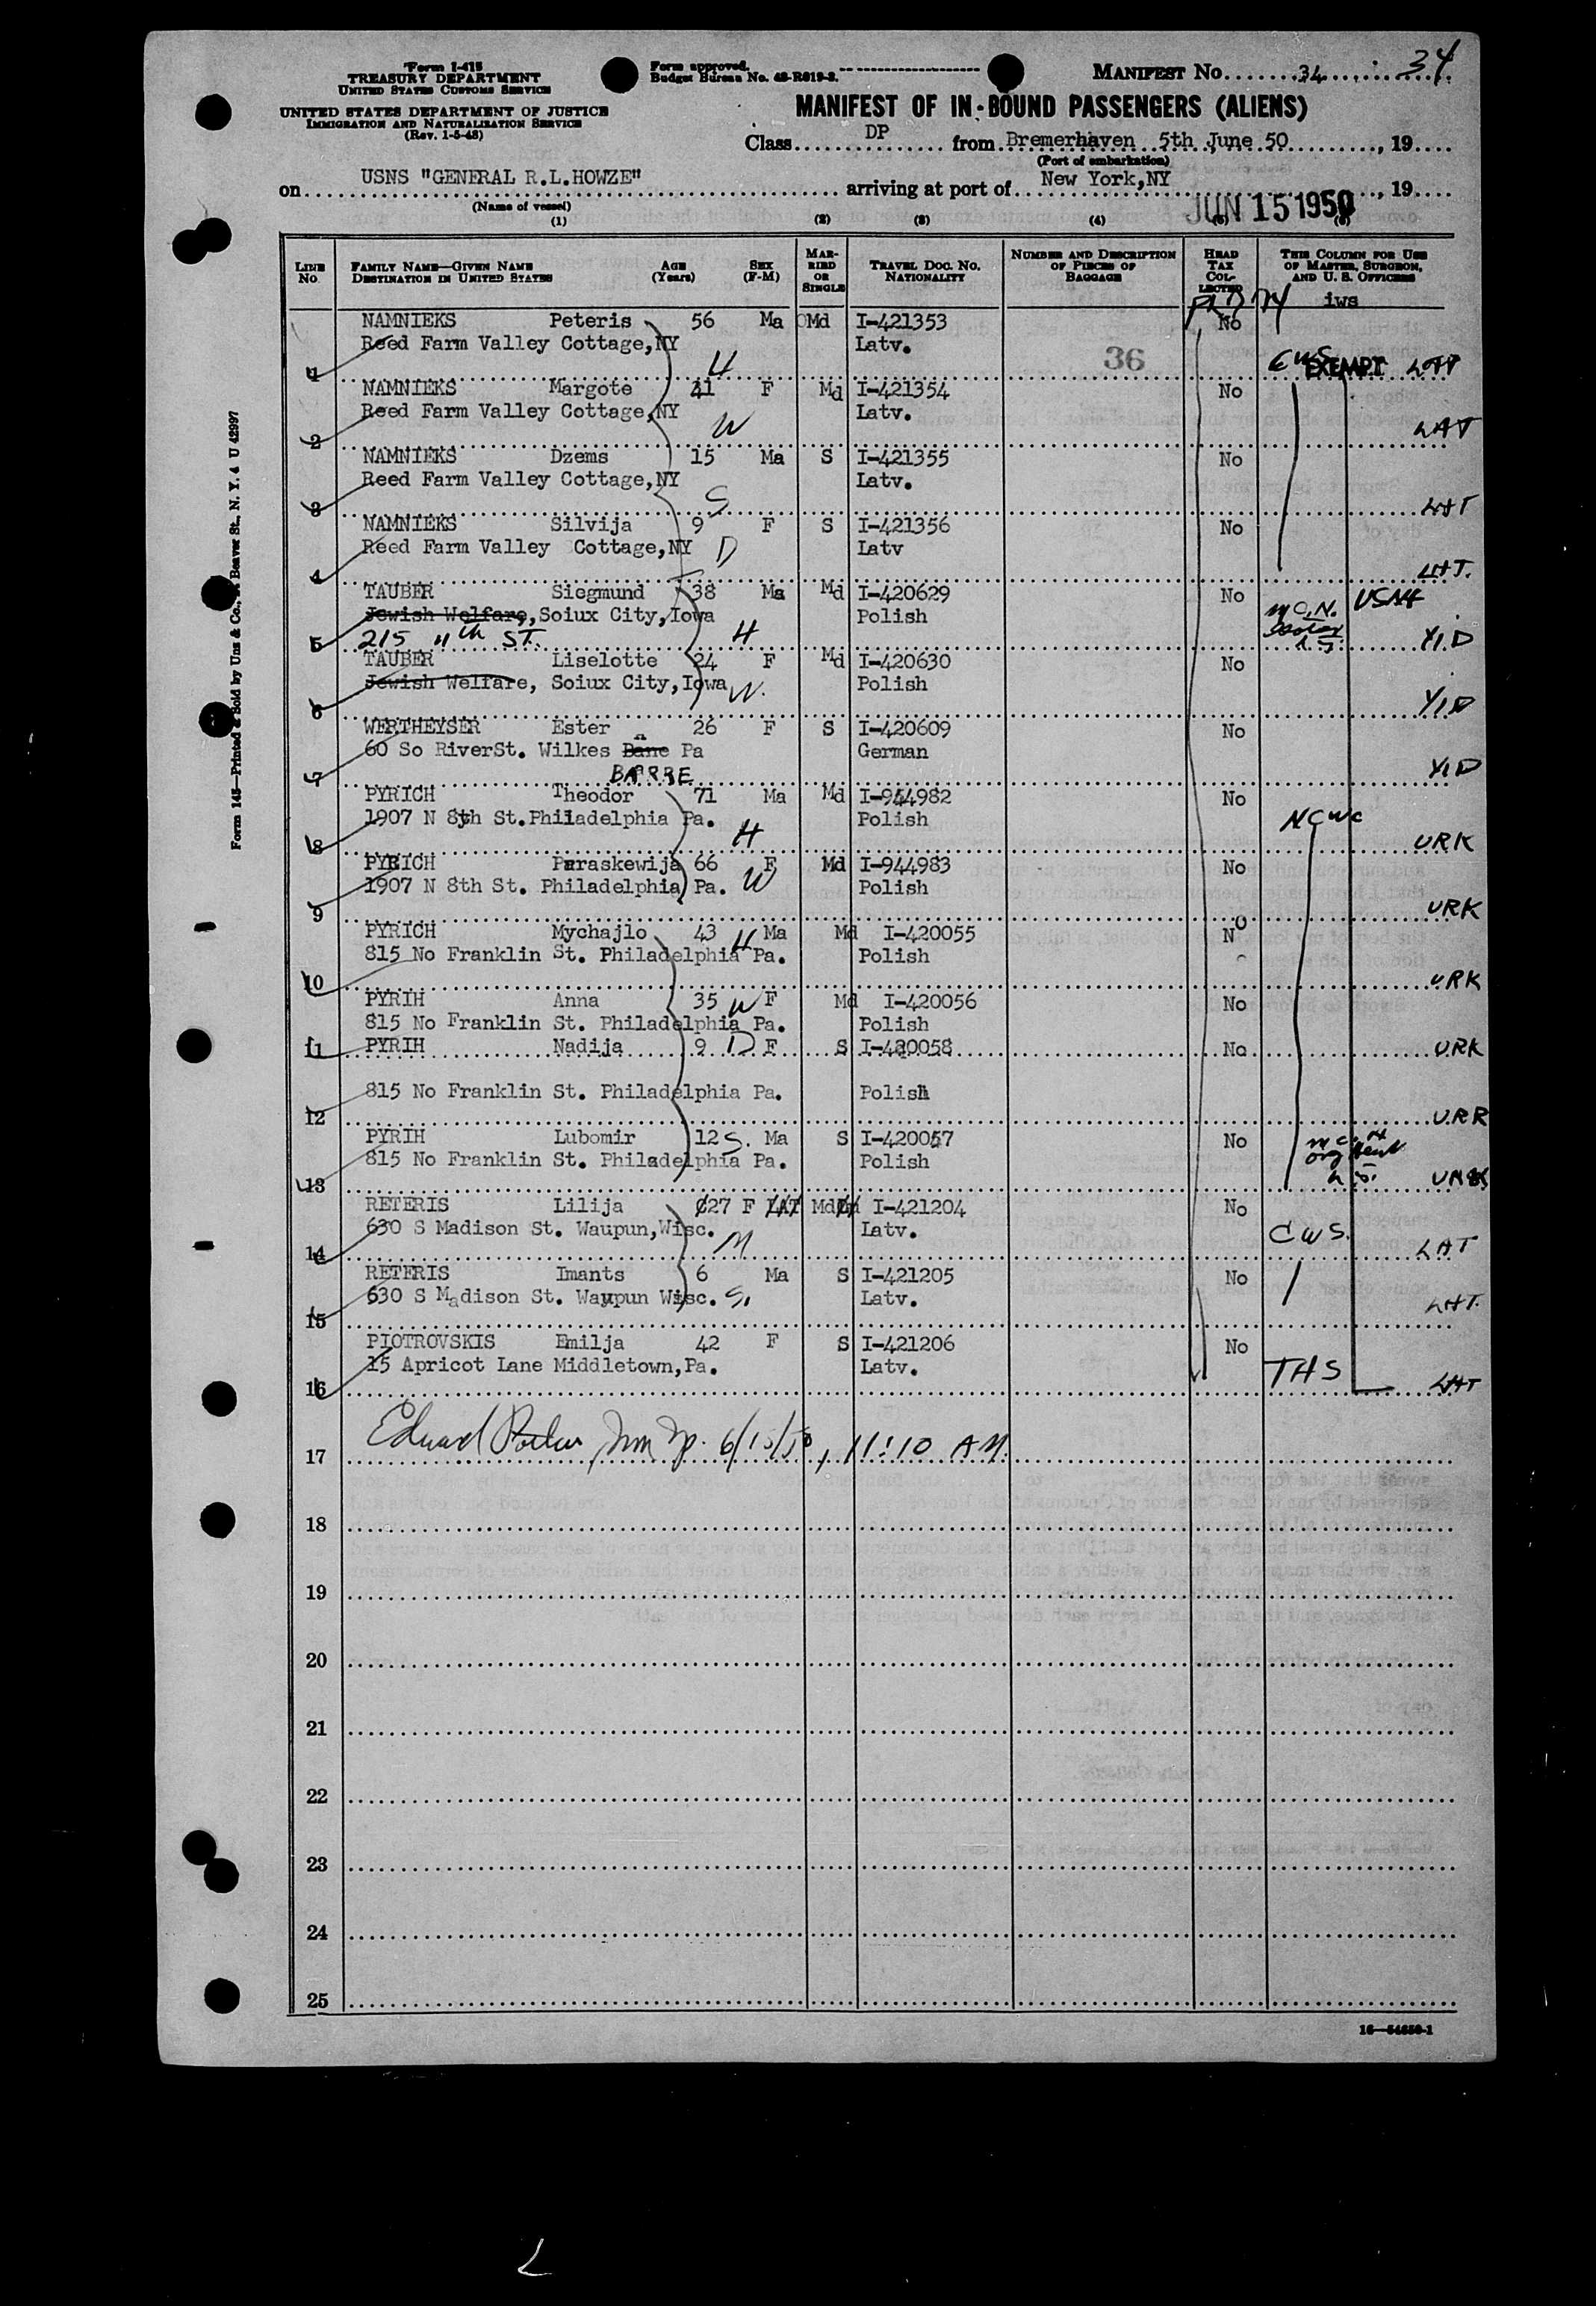 Form I-415
TREASURY DEPARTMENT
UNITED STATES CUSTOMS SERVICE
UNITED STATES DEPARTMENT OF JUSTICE
IMMIGRATION AND NATURALIZATION SERVICE
(Rev. 1-5-48)
Form approved.
Budget Bureau No. 43-R019-2.
MANIFEST No. 34 34
MANIFEST OF IN-BOUND PASSENGERS (ALIENS)
Class DP from Bremerhaven 5th June 50, 19
(Port of embarkation)
on USNS "GENERAL R.L.HOWZE" arriving at port of New York,NY, 19
(Name of vessel)
JUN 15 1950
(1) (2) (3) (4) (5) (6)
LINE No. FAMILY NAME—GIVEN NAME DESTINATION IN UNITED STATES AGE (Years) SEX (F-M) MARRIED OR SINGLE TRAVEL DOC. No. NATIONALITY NUMBER AND DESCRIPTION OF PIECES OF BAGGAGE HEAD TAX COLLECTED THIS COLUMN FOR USE OF MASTER, SURGEON, AND U. S. OFFICERS
iws
NAMNIEKS Peteris 56 Ma Md I-421353 No
Reed Farm Valley Cottage,NY Latv. 36
1 H CWS EXEMPT LAT
NAMNIEKS Margote 41 F Md I-421354 No
Reed Farm Valley Cottage,NY Latv.
2 W LAT
NAMNIEKS Dzems 15 Ma S I-421355 No
Reed Farm Valley Cottage,NY Latv.
3 S LAT
NAMNIEKS Silvija 9 F S I-421356 No
Reed Farm Valley Cottage,NY D Latv
4 LAT.
TAUBER Siegmund 38 Ma Md I-420629 No USNA
Jewish Welfare,Soiux City,Iowa Polish
5 215 11th ST. H YID
TAUBER Liselotte 24 F Md I-420630 No
Jewish Welfare, Soiux City,Iowa W. Polish
6 YID
WERTHEYSER Ester 26 F S I-420609 No
60 So RiverSt. Wilkes Bane Pa German
7 BARRE YID
PYRICH Theodor 71 Ma Md I-944982 No
1907 N 8th St.Philadelphia Pa. Polish NCWC
8 H URK
PYRICH Paraskewija 66 F Md I-944983 No
1907 N 8th St. Philadelphia Pa. W Polish
9 URK
PYRICH Mychajlo 43 H Ma Md I-420055 No
815 No Franklin St. Philadelphia Pa. Polish
10 URK
PYRIH Anna 35 W F Md I-420056 No
815 No Franklin St. Philadelphia Pa. Polish
11 PYRIH Nadija 9 D F S I-420058 No URK
815 No Franklin St. Philadelphia Pa. Polish
12 URK
PYRIH Lubomir 12 S. Ma S I-420057 No
815 No Franklin St. Philadelphia Pa. Polish
13 URK
RETERIS Lilija 27 F LAT Md I-421204 No
630 S Madison St. Waupun,Wisc. Latv. CWS.
14 M LAT
RETERIS Imants 6 Ma S I-421205 No
630 S Madison St. Waupun Wisc. S. Latv.
15 LAT.
PIOTROVSKIS Emilja 42 F S I-421206 No
15 Apricot Lane Middletown,Pa. Latv. THS
16 LAT
17 Edward 6/15/50, 11:10 AM.
18
19
20
21
22
23
24
25
16—54650-1
Form 145—Printed & Sold by Unz & Co., Beaver St., N. Y. 4 U 42997